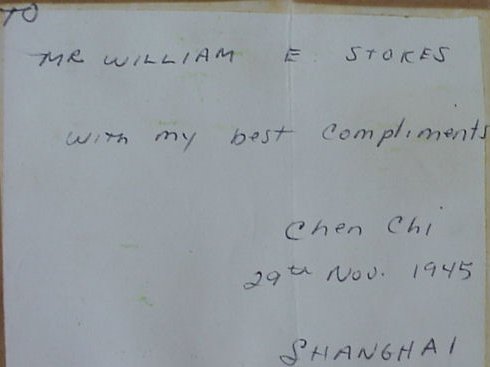 TO
MR WILLIAM E STOKES
with my best compliments
Chen Chi
29th Nov. 1945
SHANGHAI